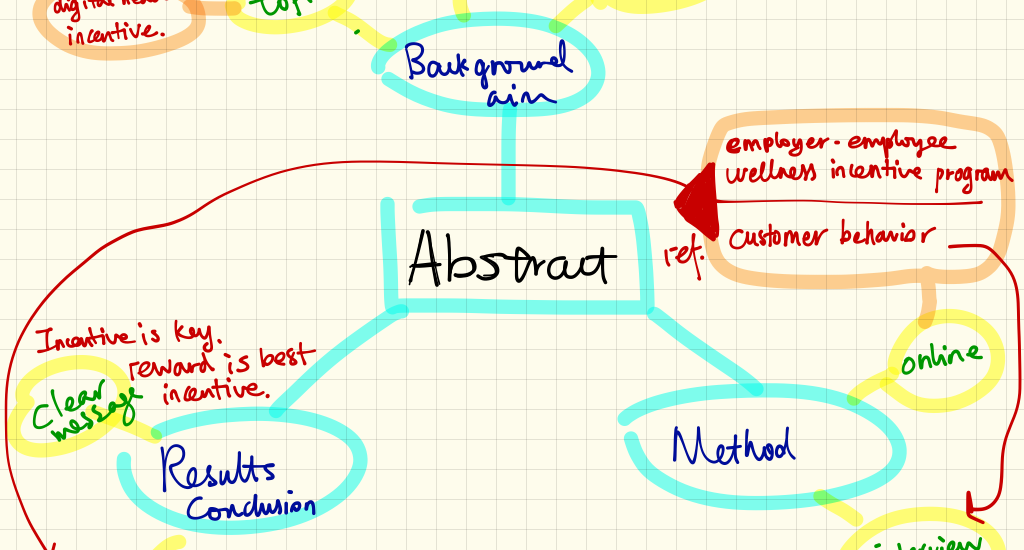 incentive.
Background
aim
employer-employee
wellness incentive program
customer behavior
ref.
Abstract
Incentive is key.
reward is best
incentive.
Clear
message
online
Results
Conclusion
Method
interview